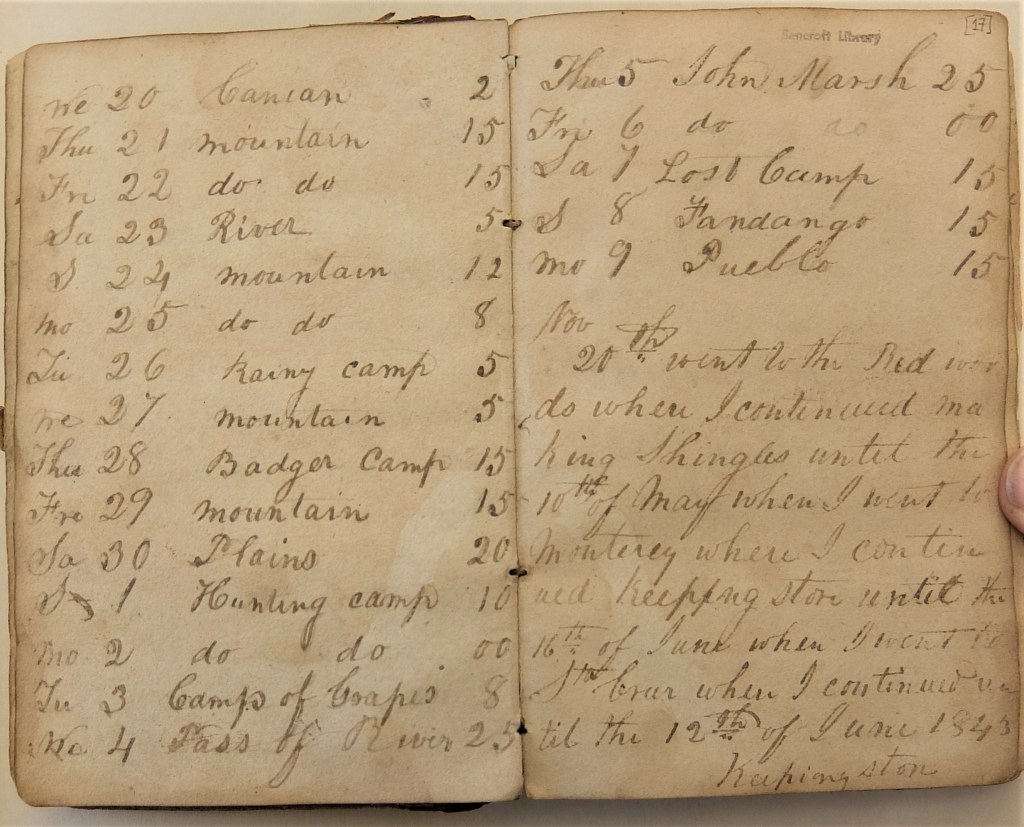 We 20 Canian 2
Thu 21 mountain 15
Fri 22 do do 15
Sa 23 River 5
S 24 mountain 12
Mo 25 do do 8
Tu 26 Rainy camp 5
We 27 mountain 5
Thu 28 Badger Camp 15
Fri 29 mountain 15
Sa 30 Plains 20
S 1 Hunting camp 10
Mo 2 do do 00
Tu 3 Camp of Grapes 8
We 4 Pass of River 25
[17]
Bancroft Library
Thu 5 John Marsh 25
Fri 6 do do 00
Sa 7 Lost Camp 15
S 8 Fandango 15
Mo 9 Pueblo 15
Nov
20th went to the Red woo
ds where I continued ma
king Shingles until the
10th of May when I went to
Monterey where I contin
ued keepping store until the
16th of June when I went to
Sta Cruz when I continued un
til the 12th of June 1843
Keeping store